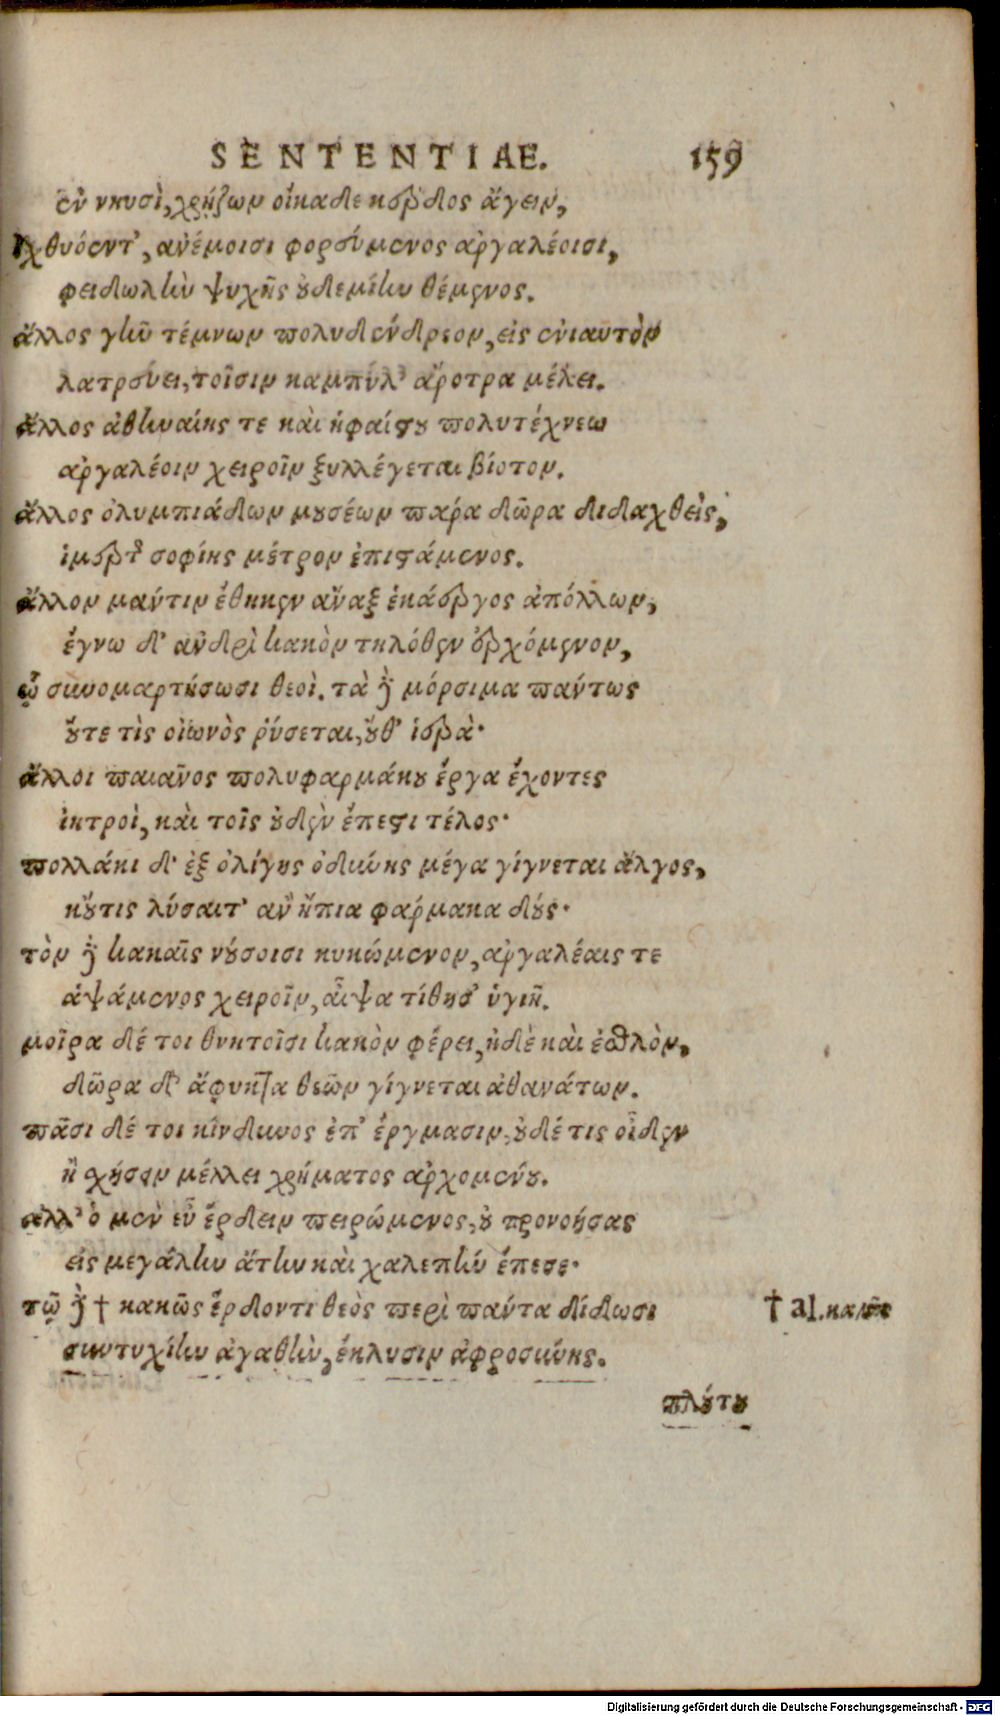 SENTENTIAE. 159
ἐν νηυσὶ, χρῄζων οἴκαδε κέρδος ἄγειν,
Ἰχθυόεντ', ἀνέμοισι φορεύμενος ἀργαλέοισι,
φειδωλὴν ψυχῆς οὐδεμίην θέμενος.
ἄλλος γῆν τέμνων πολυδένδρεον, εἰς ἐνιαυτὸν
λατρεύει, τοῖσιν καμπύλ' ἄροτρα μέλει.
ἄλλος ἀθηναίης τε καὶ ἡφαίστου πολυτέχνεω
ἀργαλέοιν χειροῖν ξυλλέγεται βίοτον.
ἄλλος ὀλυμπιάδων μουσέων πάρα δῶρα διδαχθεὶς,
ἱμερτῆς σοφίης μέτρον ἐπιστάμενος.
ἄλλον μάντιν ἔθηκεν ἄναξ ἑκάεργος ἀπόλλων,
ἔγνω δ' ἀνδρὶ κακὸν τηλόθεν ἐρχόμενον,
ᾧ συνομαρτήσωσι θεοὶ. τὰ δὲ μόρσιμα πάντως
οὔτε τὶς οἰωνὸς ῥύσεται, οὔθ' ἱερὰ·
ἄλλοι παιανος πολυφαρμάκου ἔργα ἔχοντες
ἰητροὶ, καὶ τοῖς οὐδὲν ἔπεστι τέλος·
πολλάκι δ' ἐξ ὀλίγης ὀδύνης μέγα γίγνεται ἄλγος,
κοὔτις λύσαιτ' ἂν ἤπια φάρμακα δούς·
τὸν δὲ κακαῖς νούσοισι κυκώμενον, ἀργαλέαις τε
ἁψάμενος χειροῖν, αἶψα τίθησ' ὑγιῆ.
μοῖρα δέ τοι θνητοῖσι κακὸν φέρει, ἠδὲ καὶ ἐσθλὸν,
δῶρα δ' ἄφυκτα θεῶν γίγνεται ἀθανάτων.
πᾶσι δέ τοι κίνδυνος ἐπ' ἔργμασιν, οὐδέ τις οἶδεν
ᾗ σχήσειν μέλλει χρήματος ἀρχομένου.
ἀλλ' ὁ μὲν εὖ ἔρδειν πειρώμενος, οὐ προνοήσας
εἰς μεγάλην ἄτην καὶ χαλεπὴν ἔπεσε·
τῷ δὲ † κακῶς ἔρδοντι θεὸς περὶ πάντα δίδωσι † al. καλῶς
συντυχίην ἀγαθὴν, ἔκλυσιν ἀφροσύνης.
πλούτου
Digitalisierung gefördert durch die Deutsche Forschungsgemeinschaft - DFG